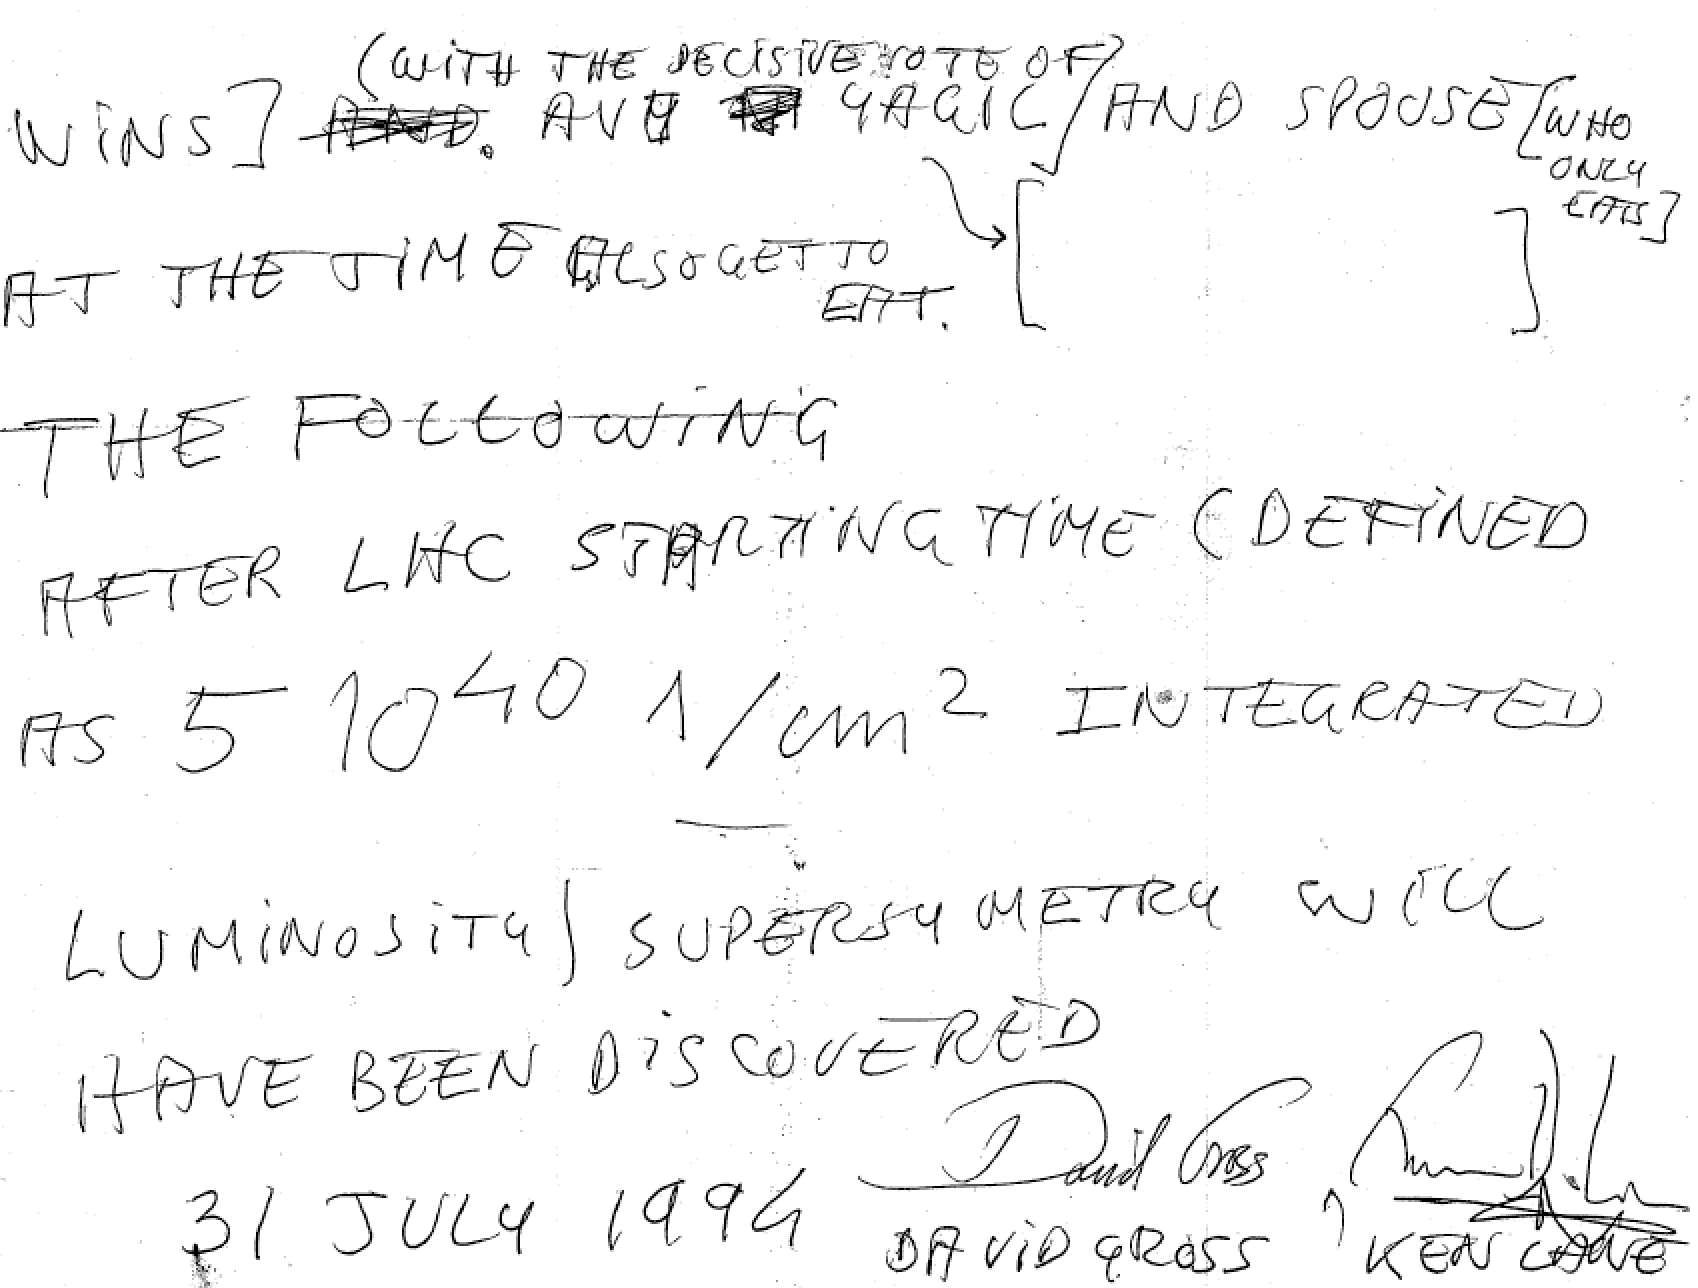 (WITH THE DECISIVE VOTE OF)
WINS] AND. AVY YAGIL / AND SPOUSE [WHO
ONLY
EATS]
AT THE TIME ALSO GET TO
EAT. [ ]
THE FOLLOWING
AFTER LHC STARTING TIME (DEFINED
AS 5 10^40 1/cm^2 INTEGRATED
LUMINOSITY) SUPERSYMETRY WILL
HAVE BEEN DISCOVERED
David Gross
31 JULY 1994 DAVID GROSS , KEN LANE